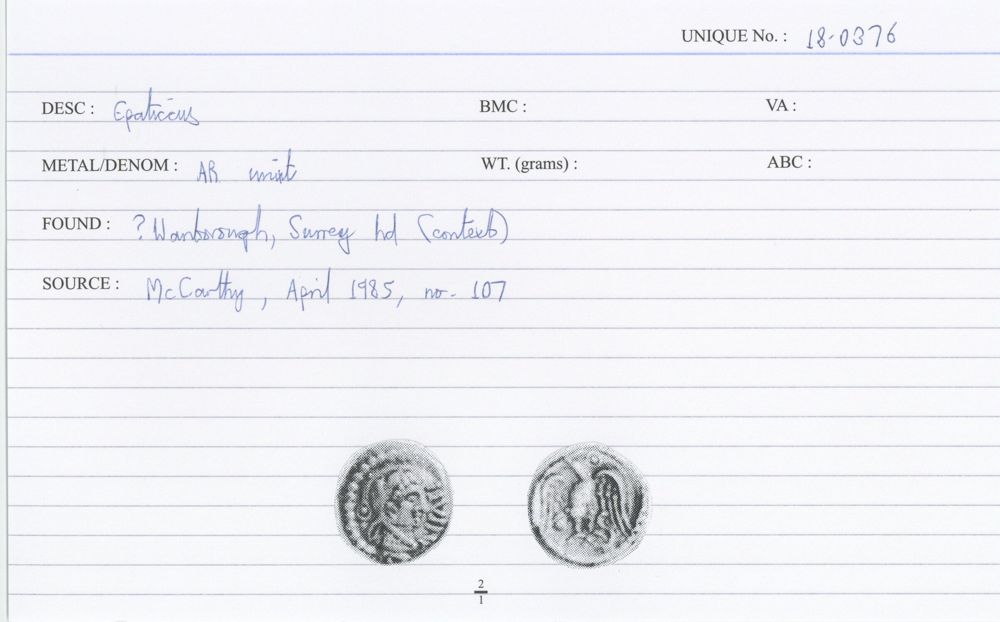 UNIQUE No. : 18-0376
DESC : Epaticcus BMC : VA :
METAL/DENOM : AR unit WT. (grams) : ABC :
FOUND : ? Wanborough, Surrey hd (context)
SOURCE : McCarthy, April 1985, no. 107
2
1